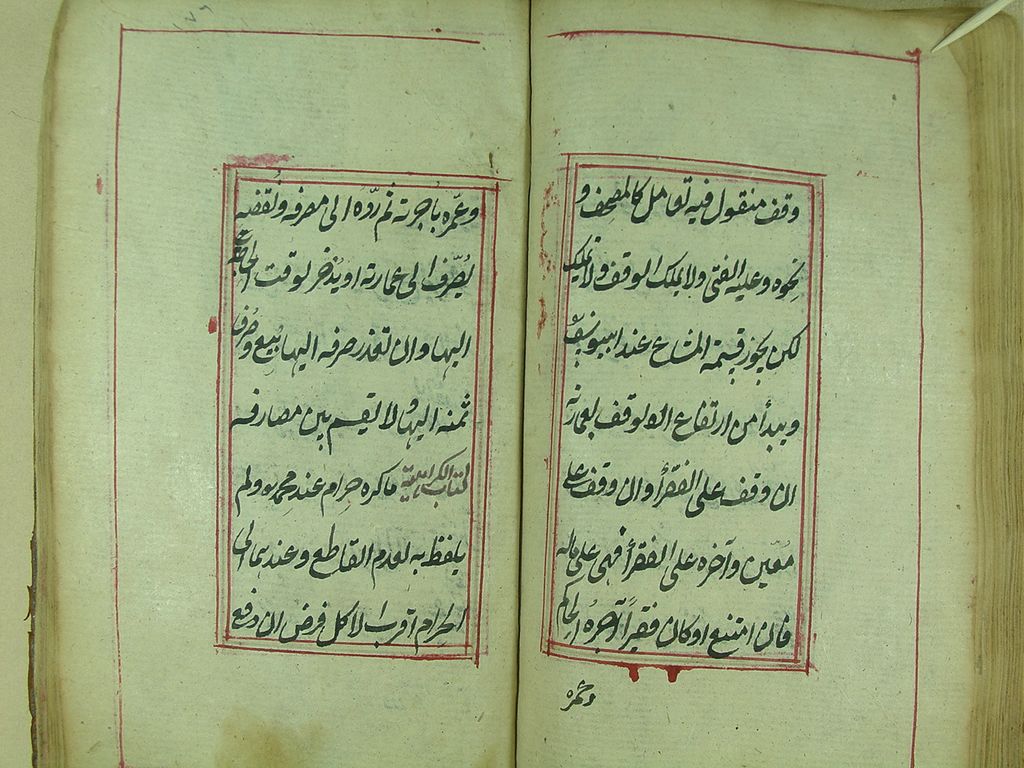 وقف منقول فيه تعامل كالمصحف و
نحوه وعليه الفتى ولا يملك الوقف ولا تمليك
لكن يجوز قسمة المشاع عند ابييوسف
ويبدأ من ارتفاع الوقف بعمارته
ان وقف على الفقرأ وان وقف على
معيّن وآخره على الفقرأ فهى على ماله
فان امتنع او كان فقيراً آجره الحاكم
وعمره
١٧٦
وعمّره باجرته ثم ردّه الى مصرفه ونقضه
يُصرف الى عمارته او يدّخر لوقت الحاجة
اليها وان تعذر صرفه اليها بيع وصُرف
ثمنه اليها ولا يقسم بين مصارفه
كتاب الكراهية ما كره حرام عند محمد ولم
يلفظ به لعدم القاطع وعندهما الى
الحرام اقرب الاكل فرض ان دفع